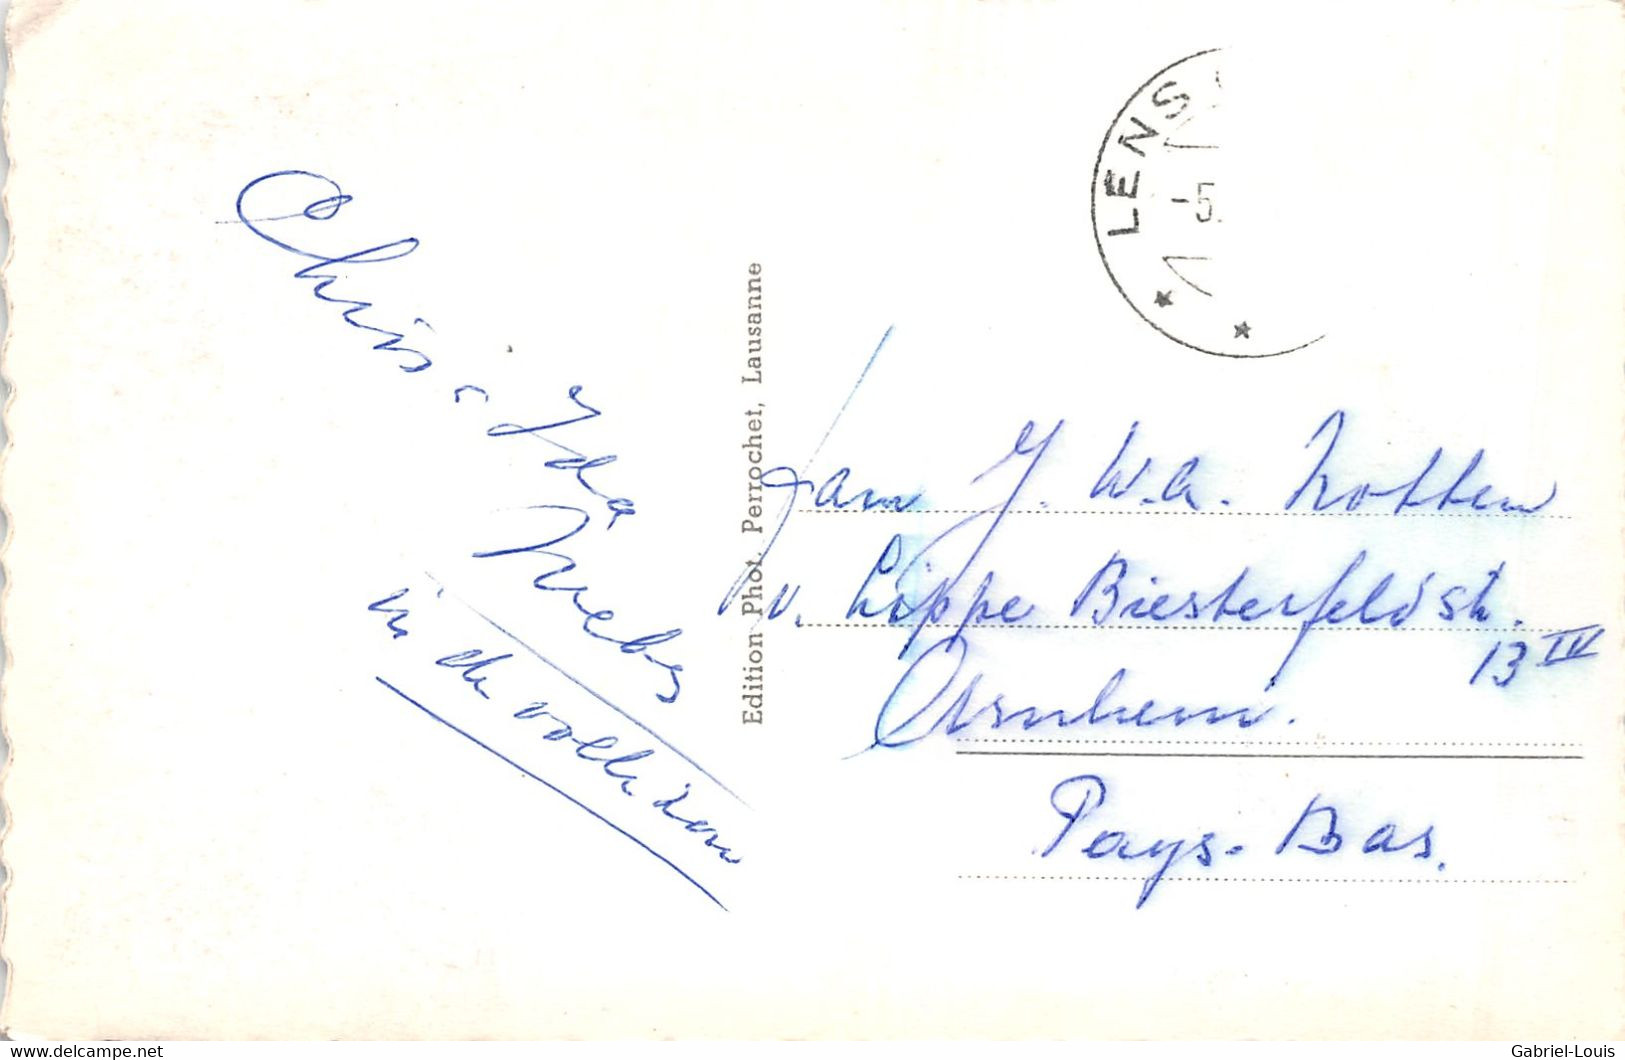 Chris & Ida
in de
Edition Phot. Perrochet, Lausanne
LENS
-5.
Fam J. W.A. Notten
v. Lippe Biesterfeldstr.
13 IV
Arnhem.
Pays-Bas.
www.delcampe.net
Gabriel-Louis